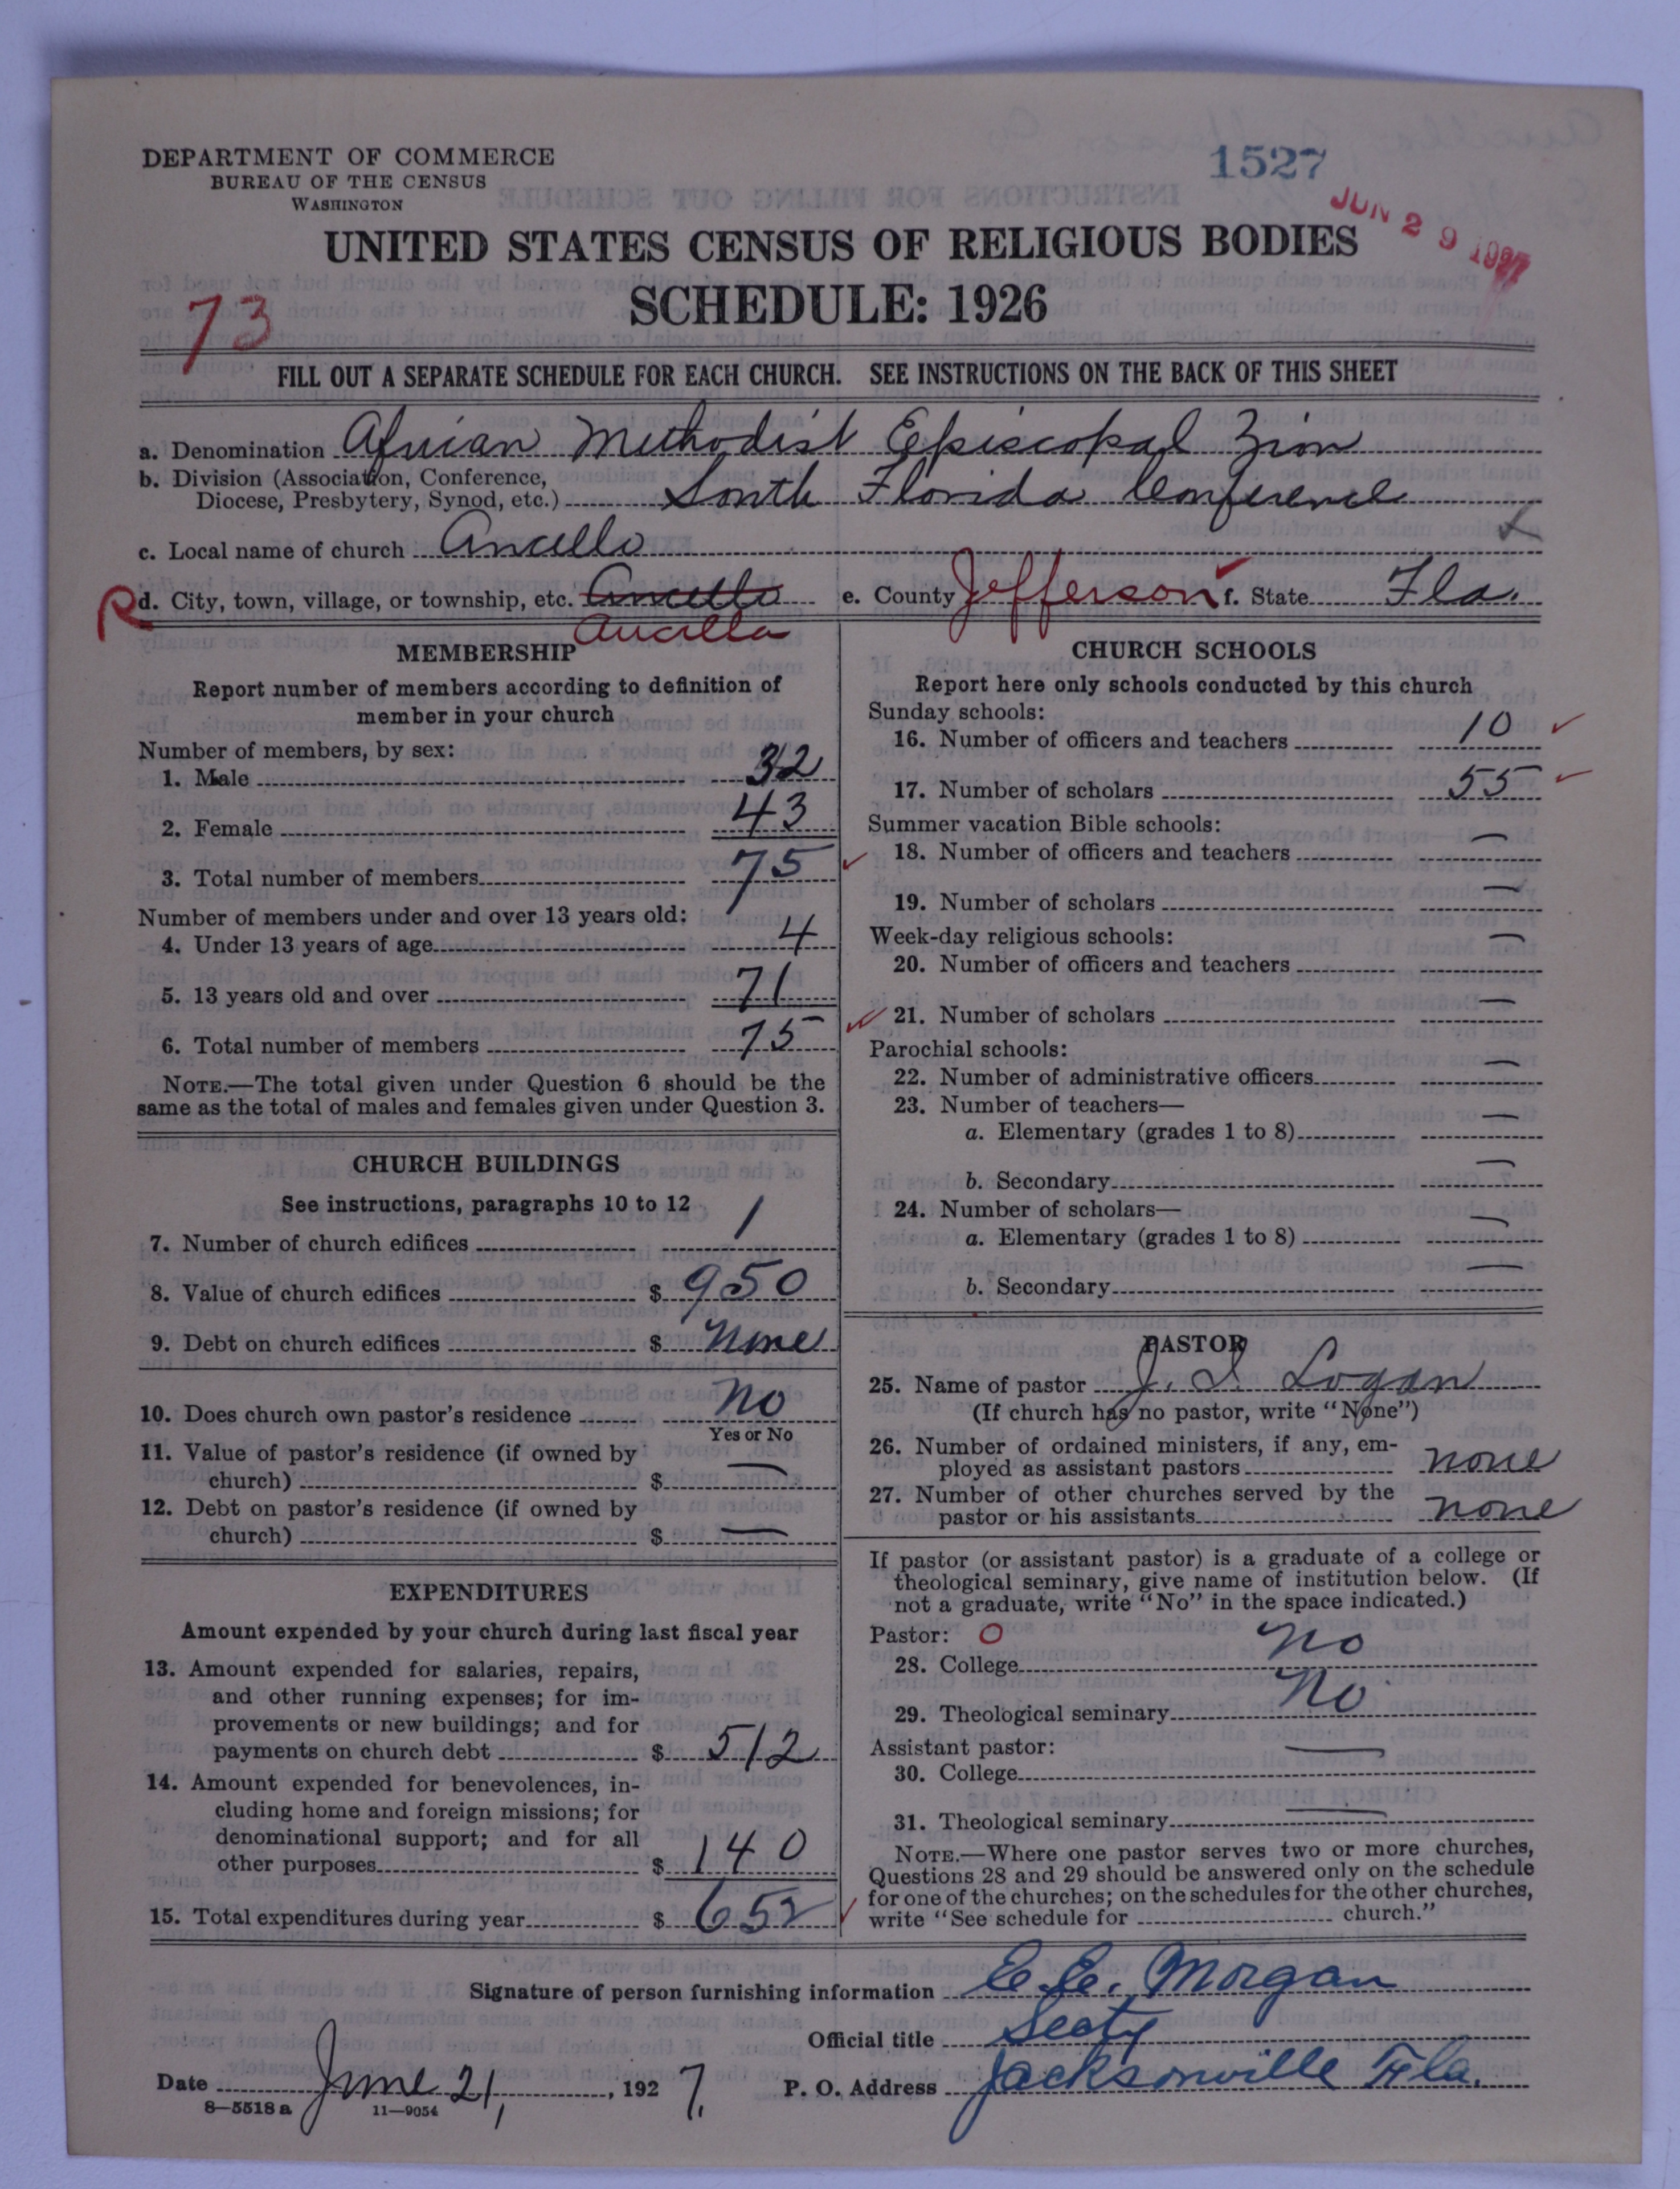 DEPARTMENT OF COMMERCE
BUREAU OF THE CENSUS
WASHINGTON
1527
JUN 29 1927
UNITED STATES CENSUS OF RELIGIOUS BODIES
SCHEDULE: 1926
73
FILL OUT A SEPARATE SCHEDULE FOR EACH CHURCH. SEE INSTRUCTIONS ON THE BACK OF THIS SHEET
a. Denomination African Methodist Episcopal Zion
b. Division (Association, Conference,
Diocese, Presbytery, Synod, etc.) South Florida Conference
c. Local name of church Ancello
R d. City, town, village, or township, etc. Ancello e. County Jefferson f. State Fla.
Aucilla
MEMBERSHIP
Report number of members according to definition of
member in your church
Number of members, by sex:
1. Male 32
2. Female 43
3. Total number of members 75
Number of members under and over 13 years old:
4. Under 13 years of age 4
5. 13 years old and over 71
6. Total number of members 75
NOTE.—The total given under Question 6 should be the
same as the total of males and females given under Question 3.
CHURCH BUILDINGS
See instructions, paragraphs 10 to 12
7. Number of church edifices 1
8. Value of church edifices $ 950
9. Debt on church edifices $ None
10. Does church own pastor's residence No
Yes or No
11. Value of pastor's residence (if owned by
church) $ —
12. Debt on pastor's residence (if owned by
church) $ —
EXPENDITURES
Amount expended by your church during last fiscal year
13. Amount expended for salaries, repairs,
and other running expenses; for im-
provements or new buildings; and for
payments on church debt $ 512
14. Amount expended for benevolences, in-
cluding home and foreign missions; for
denominational support; and for all
other purposes $ 140
15. Total expenditures during year $ 652
CHURCH SCHOOLS
Report here only schools conducted by this church
Sunday schools:
16. Number of officers and teachers 10
17. Number of scholars 55
Summer vacation Bible schools:
18. Number of officers and teachers —
19. Number of scholars —
Week-day religious schools:
20. Number of officers and teachers —
21. Number of scholars —
Parochial schools:
22. Number of administrative officers —
23. Number of teachers—
a. Elementary (grades 1 to 8) —
b. Secondary —
24. Number of scholars—
a. Elementary (grades 1 to 8) —
b. Secondary —
PASTOR
25. Name of pastor J. S. Logan
(If church has no pastor, write "None")
26. Number of ordained ministers, if any, em-
ployed as assistant pastors none
27. Number of other churches served by the
pastor or his assistants none
If pastor (or assistant pastor) is a graduate of a college or
theological seminary, give name of institution below. (If
not a graduate, write "No" in the space indicated.)
Pastor: O
28. College No
29. Theological seminary No
Assistant pastor:
30. College —
31. Theological seminary —
NOTE.—Where one pastor serves two or more churches,
Questions 28 and 29 should be answered only on the schedule
for one of the churches; on the schedules for the other churches,
write "See schedule for church."
Signature of person furnishing information E. E. Morgan
Official title Secty
Date June 21, 1927. P. O. Address Jacksonville Fla.
8—5518 a 11—9054